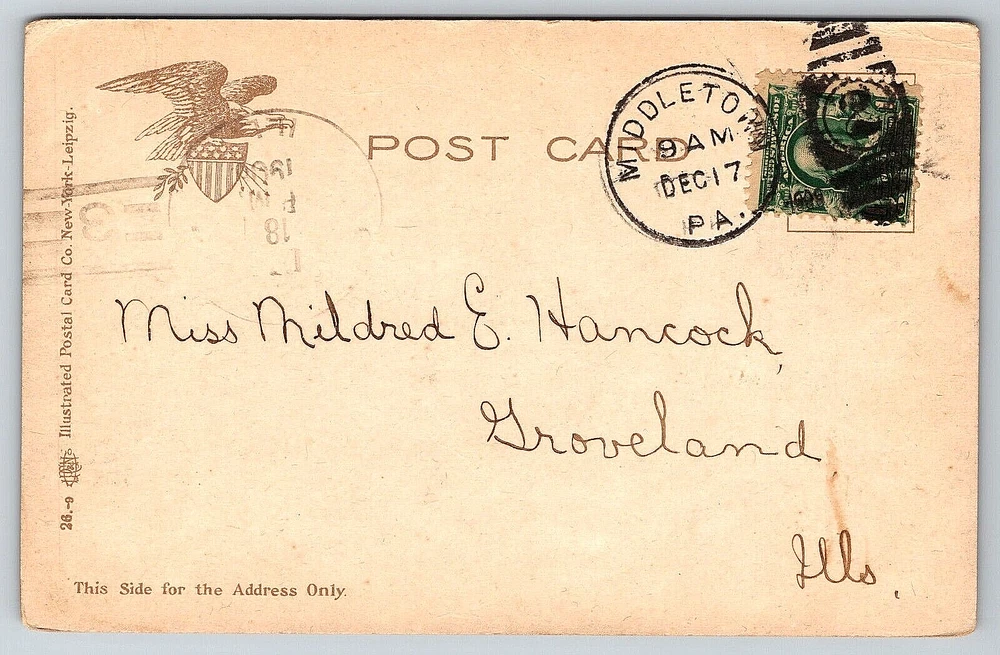 POST CARD
MIDDLETOWN
9 AM
DEC 17
PA.
Miss Mildred E. Hancock,
Groveland
Ills.
This Side for the Address Only.
26.-9
Illustrated Postal Card Co. New-York-Leipzig.